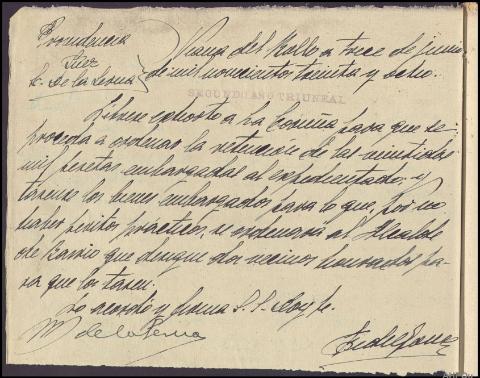 Providencia
Juez
S. De la Serna
Vianza del Bollo a trece de junio
de mil novecientos treinta y ocho.
SEGUNDO AÑO TRIUNFAL
Librese exhorto a La Coruña para que se
proceda a ordenar la retención de las veintidos
mil pesetas embargadas al expedientado, y
tásense los bienes embargados para lo que, por no
haber peritos prácticos, se ordenará al Alcalde
de Barrio que designe dos vecinos honrados pa-
ra que los tasen.
Lo acordó y firma S. S. Doy fe.
de la Serna